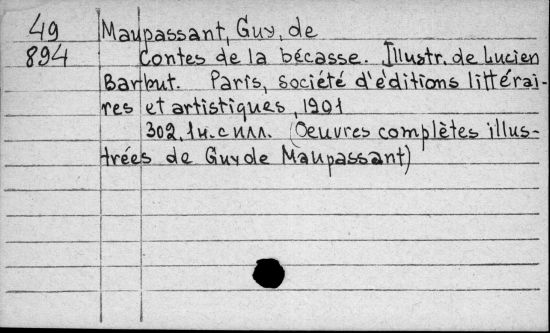 49 Maupassant, Guy, de
894 Contes de la bécasse. Illustr. de Lucien
Barbut. Paris, société d'éditions littérai-
res et artistiques, 1901
302, 1н. с илл. (Oeuvres complètes illus-
trées de Guy de Maupassant)